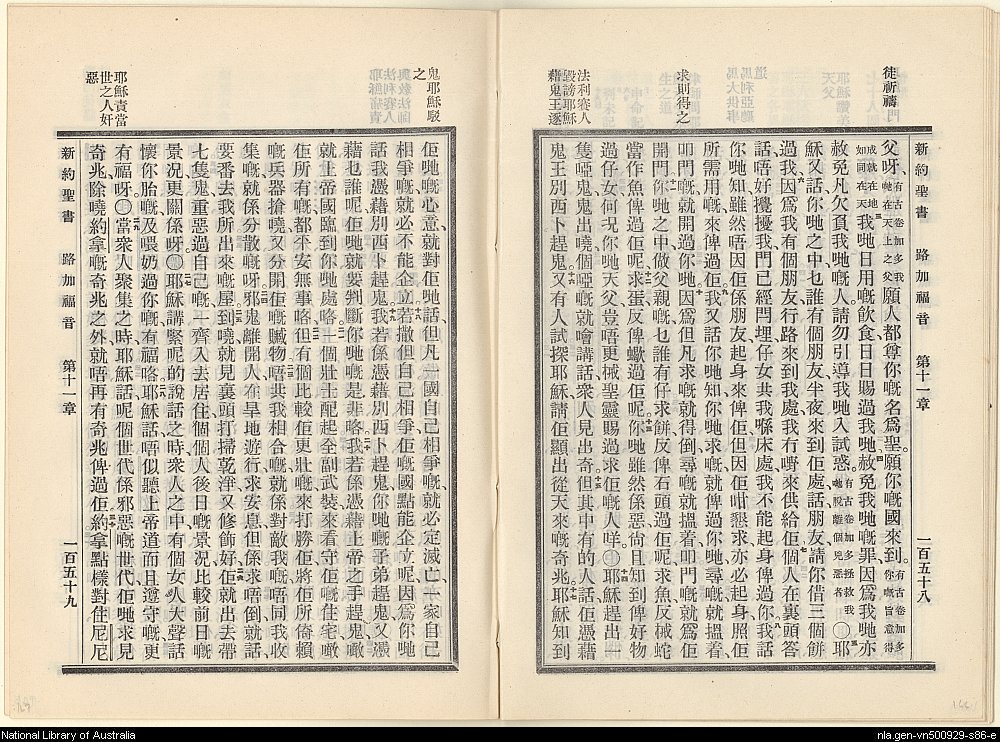 徒祈禱
求則得之
法利賽人
毀謗耶穌
藉鬼王逐
新約聖書 路加福音 第十一章 一百五十八
父呀有古卷加多我哋在天上之父願人都尊你嘅名爲聖願你嘅國來到有古卷加多你嘅旨意得
成就在地如同在天我哋日用嘅飲食日日賜過我哋赦免我哋嘅罪因爲我哋亦
赦免凡欠負我哋嘅人請勿引導我哋入試惑有古卷加多拯救我哋脫離個兇惡者〇耶
穌又話你哋之中乜誰有個朋友半夜來到佢處話朋友請你借三個餅
過我因爲我有個朋友行路來到我處我冇嘢來供給佢個人在裏頭答
話唔好攪擾我門已經閂埋仔女共我喺床處我不能起身俾過你我話
你哋知雖然唔因佢係朋友起身來俾佢但因佢咁懇求亦必起身照佢
所需用嘅來俾過佢我又話你哋知你哋求嘅就俾過你哋尋嘅就搵着
叩門嘅就開過你哋因爲但凡求嘅就得倒尋嘅就搵着叩門嘅就爲佢
開門你哋之中做父親嘅乜誰有仔求餅反俾石頭過佢呢求魚反械蛇
當作魚俾過佢呢求蛋反俾蠍過佢呢你哋雖然係惡尙且知到俾好物
過仔女何况你哋天父豈唔更械聖靈賜過求佢嘅人咩〇耶穌趕出一
隻啞鬼鬼出嘵個啞嘅就噲講話衆人見出奇但其中有的人話佢憑藉
鬼王別西卜趕鬼又有人試探耶穌請佢顯出從天來嘅奇兆耶穌知到
鬼耶穌駁
之
耶穌責當
世之人奸
惡
佢哋嘅心意就對佢哋話但凡一國自己相爭嘅就必定滅亡一家自己
相爭嘅就必不能企立若撒但自己相爭佢嘅國點能企立呢因爲你哋
話我憑藉別西卜趕鬼我若係憑藉別西卜趕鬼你哋嘅子弟趕鬼又憑
藉乜誰呢佢哋就要判斷你哋嘅是非咯我若係憑藉上帝之手趕鬼噉
就上帝國臨到你哋處咯一個壯士配起全副武裝來看守佢住宅噉
佢所有嘅都平安無事咯但有個比較佢更壯嘅來打勝佢將佢所倚賴
嘅兵器搶嘵又分開佢嘅贓物唔共我相合嘅就係對敵我嘅唔同我收
集嘅就係分散嘅呀邪鬼離開人在旱地遊行求安息但係求唔倒就話
要番去我所出來嘅屋到嘵就見裏頭打掃乾淨又修飾好佢就出去帶
七隻鬼重惡過自己嘅一齊入去居住個個人後日嘅景况比較前日嘅
景况更關係呀〇耶穌講緊呢的說話之時衆人之中有個女人大聲話
懷你胎嘅及喂奶過你嘅有福咯耶穌話唔似聽上帝道而且遵守嘅更
有福呀〇當衆人聚集之時耶穌話呢個世代係邪惡嘅世代佢哋求見
奇兆除嘵約拿嘅奇兆之外就唔再有奇兆俾過佢約拿點樣對住尼尼
新約聖書 路加福音 第十一章 一百五十九
National Library of Australia
nla.gen-vn500929-s86-e